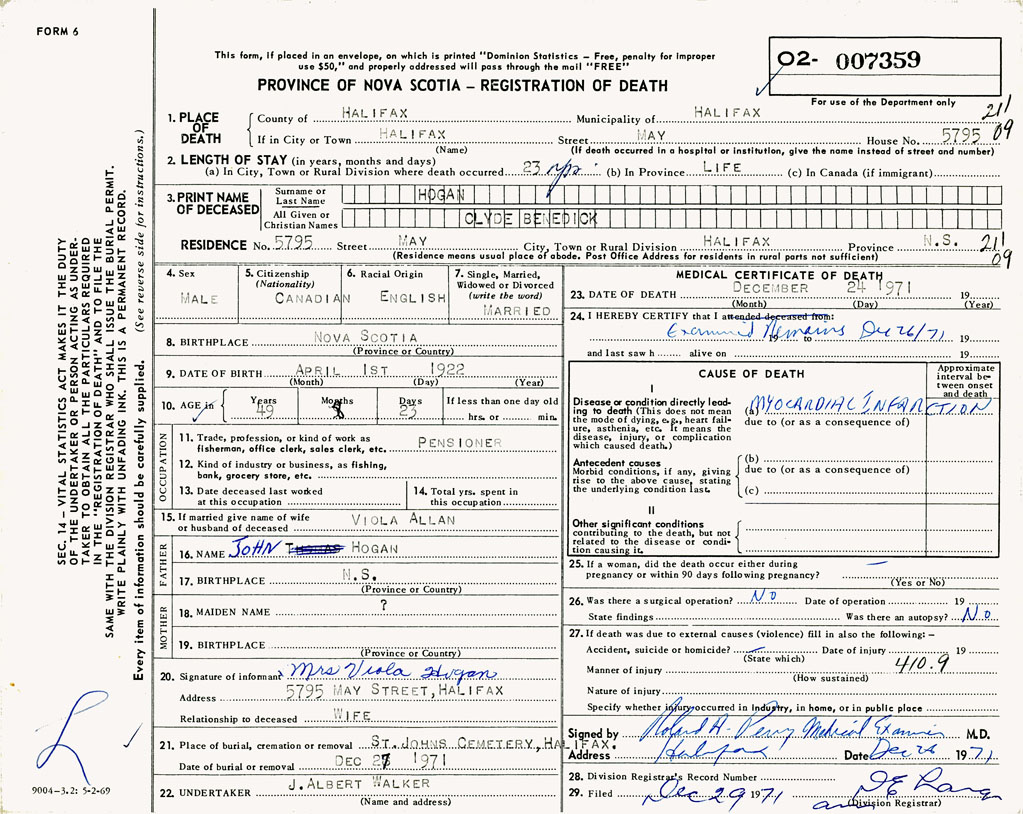 FORM 6
This form, if placed in an envelope, on which is printed "Dominion Statistics – Free, penalty for improper
use $50," and properly addressed will pass through the mail "FREE"
PROVINCE OF NOVA SCOTIA – REGISTRATION OF DEATH
02- 007359
For use of the Department only
211
09
1. PLACE OF DEATH
County of HALIFAX Municipality of HALIFAX
If in City or Town HALIFAX Street MAY House No. 5795
(Name) (If death occurred in a hospital or institution, give the name instead of street and number)
2. LENGTH OF STAY (in years, months and days)
(a) In City, Town or Rural Division where death occurred 23 yrs (b) In Province LIFE (c) In Canada (if immigrant)
3. PRINT NAME OF DECEASED
Surname or Last Name HOGAN
All Given or Christian Names CLYDE BENEDICK
RESIDENCE No. 5795 Street MAY City, Town or Rural Division HALIFAX Province N.S. 211
09
(Residence means usual place of abode. Post Office Address for residents in rural parts not sufficient)
4. Sex
MALE
5. Citizenship
(Nationality)
CANADIAN
6. Racial Origin
ENGLISH
7. Single, Married,
Widowed or Divorced
(write the word)
MARRIED
8. BIRTHPLACE NOVA SCOTIA
(Province or Country)
9. DATE OF BIRTH APRIL 1ST 1922
(Month) (Day) (Year)
10. AGE in Years 49 Months 8 Days 23 If less than one day old
hrs. or min.
OCCUPATION
11. Trade, profession, or kind of work as
fisherman, office clerk, sales clerk, etc. PENSIONER
12. Kind of industry or business, as fishing,
bank, grocery store, etc.
13. Date deceased last worked
at this occupation
14. Total yrs. spent in
this occupation
15. If married give name of wife
or husband of deceased VIOLA ALLAN
FATHER
16. NAME JOHN HOGAN
17. BIRTHPLACE N.S.
(Province or Country)
MOTHER
18. MAIDEN NAME ?
19. BIRTHPLACE
(Province or Country)
20. Signature of informant Mrs Viola Hogan
Address 5795 MAY STREET, HALIFAX
Relationship to deceased WIFE
21. Place of burial, cremation or removal ST. JOHNS CEMETERY, HALIFAX.
Date of burial or removal DEC 27 1971
22. UNDERTAKER J. ALBERT WALKER
(Name and address)
MEDICAL CERTIFICATE OF DEATH
23. DATE OF DEATH DECEMBER 24 1971 19
(Month) (Day) (Year)
24. I HEREBY CERTIFY that I attended deceased from:
Examined Remains Dec 26/71
19 to 19
and last saw h alive on 19
CAUSE OF DEATH
Approximate
interval be-
tween onset
and death
I
Disease or condition directly lead-
ing to death (This does not mean
the mode of dying, e.g., heart fail-
ure, asthenia, etc. It means the
disease, injury, or complication
which caused death.)
(a) MYOCARDIAL INFARCTION
due to (or as a consequence of)
Antecedent causes
Morbid conditions, if any, giving
rise to the above cause, stating
the underlying condition last.
(b)
due to (or as a consequence of)
(c)
II
Other significant conditions
contributing to the death, but not
related to the disease or condi-
tion causing it.
25. If a woman, did the death occur either during
pregnancy or within 90 days following pregnancy? —
(Yes or No)
26. Was there a surgical operation? No Date of operation 19
State findings Was there an autopsy? No
27. If death was due to external causes (violence) fill in also the following: –
Accident, suicide or homicide? — Date of injury 19
(State which)
410.9
Manner of injury
(How sustained)
Nature of injury
Specify whether injury occurred in industry, in home, or in public place
Signed by Roland A. Perry Medical Examiner M.D.
Address Halifax Date Dec 26 1971
28. Division Registrar's Record Number
29. Filed Dec 29 1971
(Division Registrar)
SEC. 14 – VITAL STATISTICS ACT MAKES IT THE DUTY
OF THE UNDERTAKER OR PERSON ACTING AS UNDER-
TAKER TO OBTAIN ALL THE PARTICULARS REQUIRED
IN THE "REGISTRATION OF DEATH" AND TO FILE THE
SAME WITH THE DIVISION REGISTRAR WHO SHALL ISSUE THE BURIAL PERMIT.
WRITE PLAINLY WITH UNFADING INK. THIS IS A PERMANENT RECORD.
Every item of information should be carefully supplied. (See reverse side for instructions.)
9004-3.2: 5-2-69